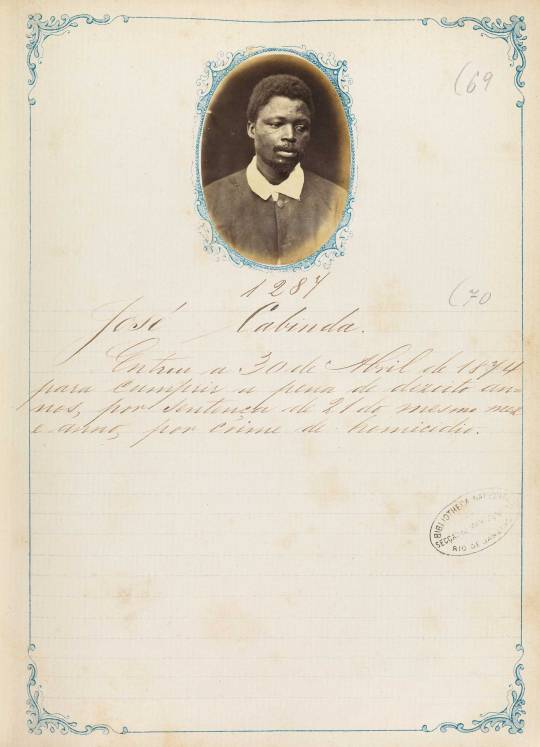 (69
1287
(70
José Cabinda.
Entrou a 30 de Abril de 1874
para cumprir a pena de dezoito an-
nos, por sentença de 21 do mesmo mez
e anno, por crime de homicidio.
BIBLIOTHECA NACIONAL
SECÇÃO
RIO DE JANEIRO